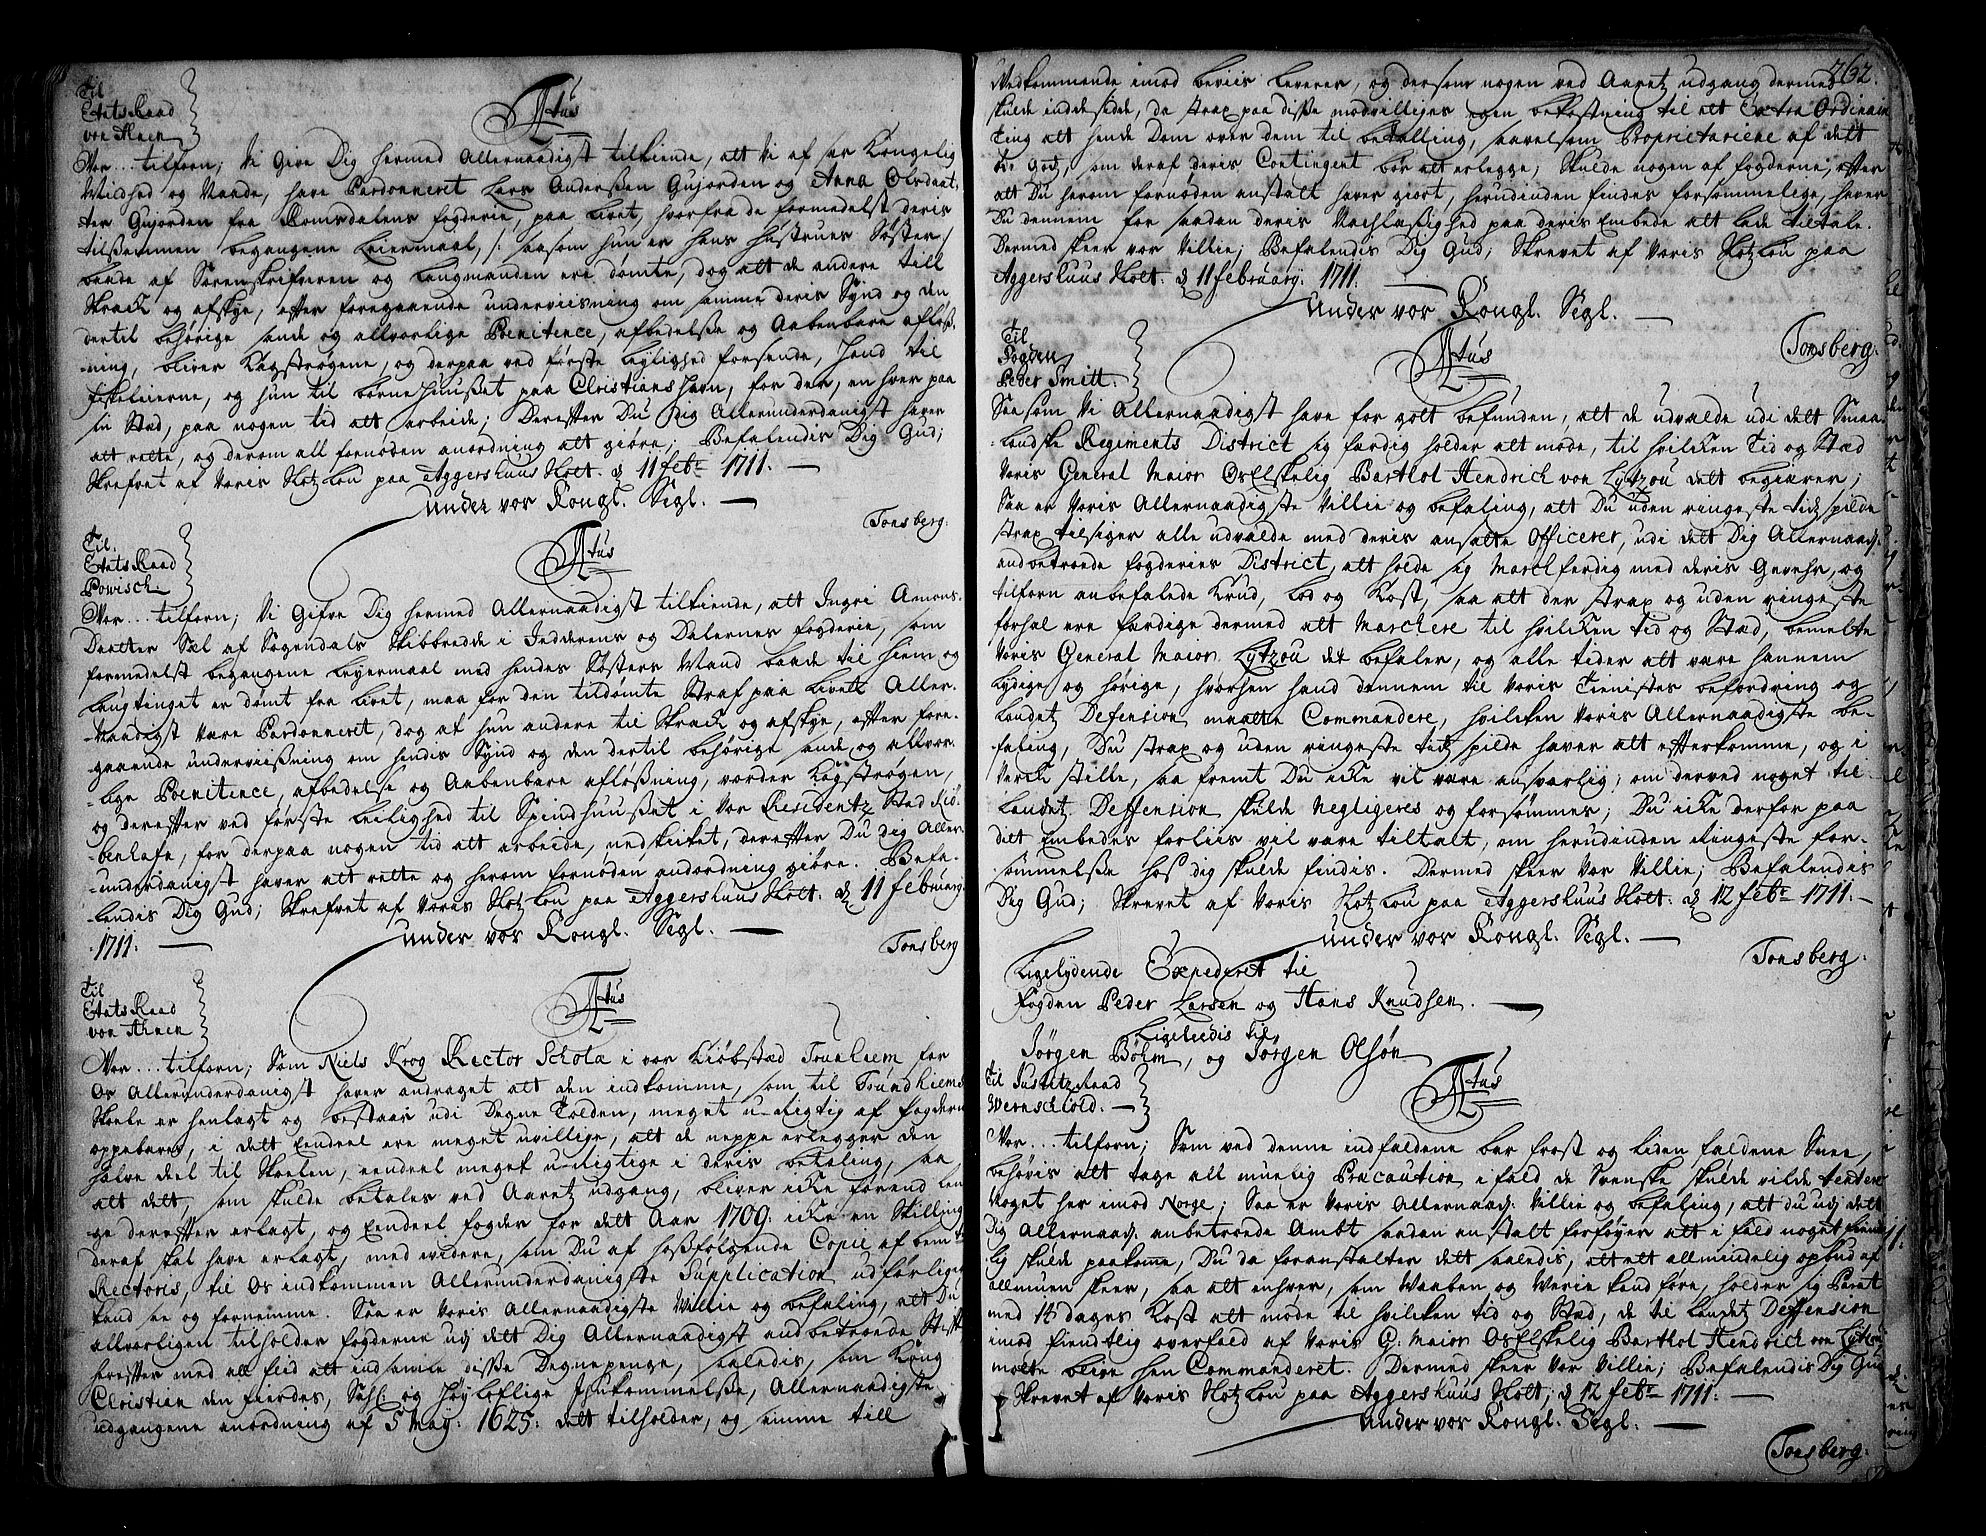 Til
Etats Raad
von Ahnen
Fr: 4tus
Vor... tilforn; Vi Give Dig hermed Allernaadigst tilkiende, at Vi af sær Kongelig
Mildhed og Naade, have Pardonneret Lars Anderßen Gujorden og Anna Olsdaat,,
ter Gujorden fra Romsdalens fogderie, paa livet, hvorfra de formedelst deris
tilsammen begangene Leiermaal, /: saasom hun er hans Hustrues Søster /
baade af Sorenskrifveren og Laugmanden ere dømte, dog att de andre till
Skræk og afskye, efter foregaaende underviisning om samme deris Synd og den
dertil behørige sande og allvorlige Poenitence, afbedelße og Aabenbare afløß-
-ning, bliver Kagstrøgene, og derpaa ved første leylighed forsende, Hand til
fiskeleierne, og hun til børnehuußet paa Christianshavn, for der, en hver paa
sin Sted, paa nogen tid att arbeide; Derefter Du dig Allerunderdanigst haver
att rette, og derom all fornøden anordning att giøre; Befalendis Dig Gud;
Skrefvet af Voris Slotzlou paa Aggershuus Slott. d 11 feb: 1711. —
Under vor Kongl. Segl. —
Tonsberg.
Til
Etats Raad
Powisch.
4tus
Vor... tilforn; Vi Gifve Dig hermed Allernaadigst tilkiende, att Ingri Amons-
Daatter Sæl af Sogendals Skibbrede i Jedderens og Dalernes fogderie, som
formedelst begangene Leyermaal med hendes Søsters Mand baade til hiem og
Laugtinget er dømt fra livet, maa for den tildømte Straf paa livet Aller-
-naadigst være Pardonneret, dog at hun andre til Skræk og afskye, efter fore-
gaaende underviißning om hendis Synd og den dertil behørige sande, og allvor-
-lige Poenitence, afbedelse og Aabenbare afløßning, vorder Kagstrøgen,
og derefter ved første leilighed til Spindhuußet i Vor Residentz Stad Kiø-
-benhafn, for derpaa nogen tid att arbeide, nedskicket, derefter Du dig Aller-
-underdanigst haver att rette og herom fornøden anordning giøre. Befa-
-lendis Dig Gud; Skrefvet af Voris Slotzlou paa Aggershuus Slott. d 11 februarij
1711. —
Under vor Kongl. Segl. —
Tonsberg
Til
Etats Raad
von Ahnen
4tus
Vor... tilforn; Som Niels Krog Rector Schola i vor Kiøbstæd Trunhiem for
Os Allerunderdanigst haver andraget att den indkomme, som til Trundhiems
Skoele er henlagt og bestaar udi Degne Tolden, meget u-rigtig af fogderne
oppebæres, i dett Eendeel ere meget uvillige, att de neppe erlegger den
halve deel til Skoelen, eendeel meget u-rigtige i deris betaling, saa
att dett, som skulde betales ved Aaretz udgang, bliver icke førend len-
ge derefter erlagt, og Eendeel fogder for dett Aar 1709. icke en Skilling
deraf skal have erlagt, med widere, som Du af hoßfølgende Copie af bem:te
Rectoris, til Os indkommen Allerunderdanigste Supplication udførligen
kand see og fornemme. Saa er Voris Allernaadigste Villie og befaling, att Du
allvorligen tilholder fogderne udj dett Dig Allernaadigst andbetroede Stift
herefter med all flid att indsamle disße Degnepenge, saaledis, som Kong
Christian den fierdes, Sahl. og Høyloflige Ihukommelse, Allernaadigste
udgangene anordning af 5 May: 1625: dett tilholder, og samme till
262.
Vedkommende imod beviis leverer, og dersom nogen ved Aaretz udgang dermed
skulde indesidde, da strax paa disße modvilliges egen bekostning til att Extra Ordinarie
Ting att hende Dom over dem til betalling, saavelsom Proprietariene af dett
før: Gods, som deraf deris Contingent bør att erlegge; Skulde nogen af fogderne, efter
att Du herom fornøden anstalt haver giort, herudinden findes forsømmelige, haver
Du dennem for saadan deris Nachlaßighed paa deris Embede att lade tiltale.
Dermed skeer vor Villie; Befalendis Dig Gud; Skrevet af Voris Slotzlou paa
Aggershuus Slott. d 11 februarij. 1711.
Under vor Kongl. Segl. —
Tonsberg.
Til
Fogden
Peder Smitt.
4tus
Saasom Vi Allernaadigst have for gott befunden, att de udvalde udi dett Smaa-
-lendske Regiments District sig færdig holder att møde, til hvilcken tid og Stæd
Voris General Maior OsElskelig Barthol Hendrich von Lytzou dett begiærer;
Saa er Voris Allernaadigste Villie og befaling, att Du uden ringeste tidz spilde
strax tilsiger alle udvalde med deris ansatte Officerer, udi dett Dig Allernaad:
andbetroede fogderies District, att holde sig Marchferdig med deris Gevehr, og
tilforn anbefalede Krud, Lod og Kost, saa att der strax og uden ringeste
forhal ere færdige dermed att Marchere til hvilcken tid og Stæd, bemelte
Voris General Maior Lytzou det befaler, og alle tider att være hannem
Lydige og hørige, hvorhen hand dennem til Voris Tienistes befordring og
Landetz Defension maatte Commandere, hvilcken Voris Allernaadigste be-
-faling, Du strax og uden ringeste tidz spilde haver att efterkomme, og i
Verck stille, saa fremt Du icke vil være ansvarlig, om derved noget til
Landetz Deffension skulde Negligeres og forsømmes; Du icke derfor paa
ditt Embedes forliis vil være tiltalt, om herudinden ringeste for-
sømmelße hos dig skulde findis. Dermed skeer Vor Villie; Befalendis
Dig Gud; Skrevet af Voris Slotzlou paa Aggershuus Slott. d 12 feb: 1711. —
Under vor Kongl. Segl. —
Tonsberg.
Ligelydende Expederet til
Fogden Peder Larsen og Hans Knudsen. —
Ligeledis til
Jørgen Bøhm, og Jørgen Olsøn
Til Justitz Raad
Wernschiold. —
4tus
Vor... tilforn; Som ved denne indfaldene bar frost og liden faldene Snee,
behøvis att tage all muelig Præcaution i fald de Svenske skulde vilde tentere
Noget her imod Norge; Saa er Voris Allernaad: Villie og befaling, att du udj dett
Dig Allernaad: anbetroede Ambt saadan anstalt forføyer att i fald noget fiendt-
lig skulde paakome, Du da foranstalter dett saaledis, att ett allmindelig opbud af
allmuen skeer, saa att enhver, som Waaben og Werie kand føre, holder sig Parat
med 14 dagers Kost att møde til hvilcken tid og Stæd, de til Landetz Deffension
imod fiendtlig overfald af Voris G: Maior OsElskelig Barthol Hendrich von Lytzou
motte blive hen Commanderet. Dermed skeer Vor Villie; Befalendis Dig Gud
Skrevet af Voris Slotzlou paa Aggershuus Slott; d 12 feb: 1711. —
Under vor Kongl. Segl. —
Tonsberg.